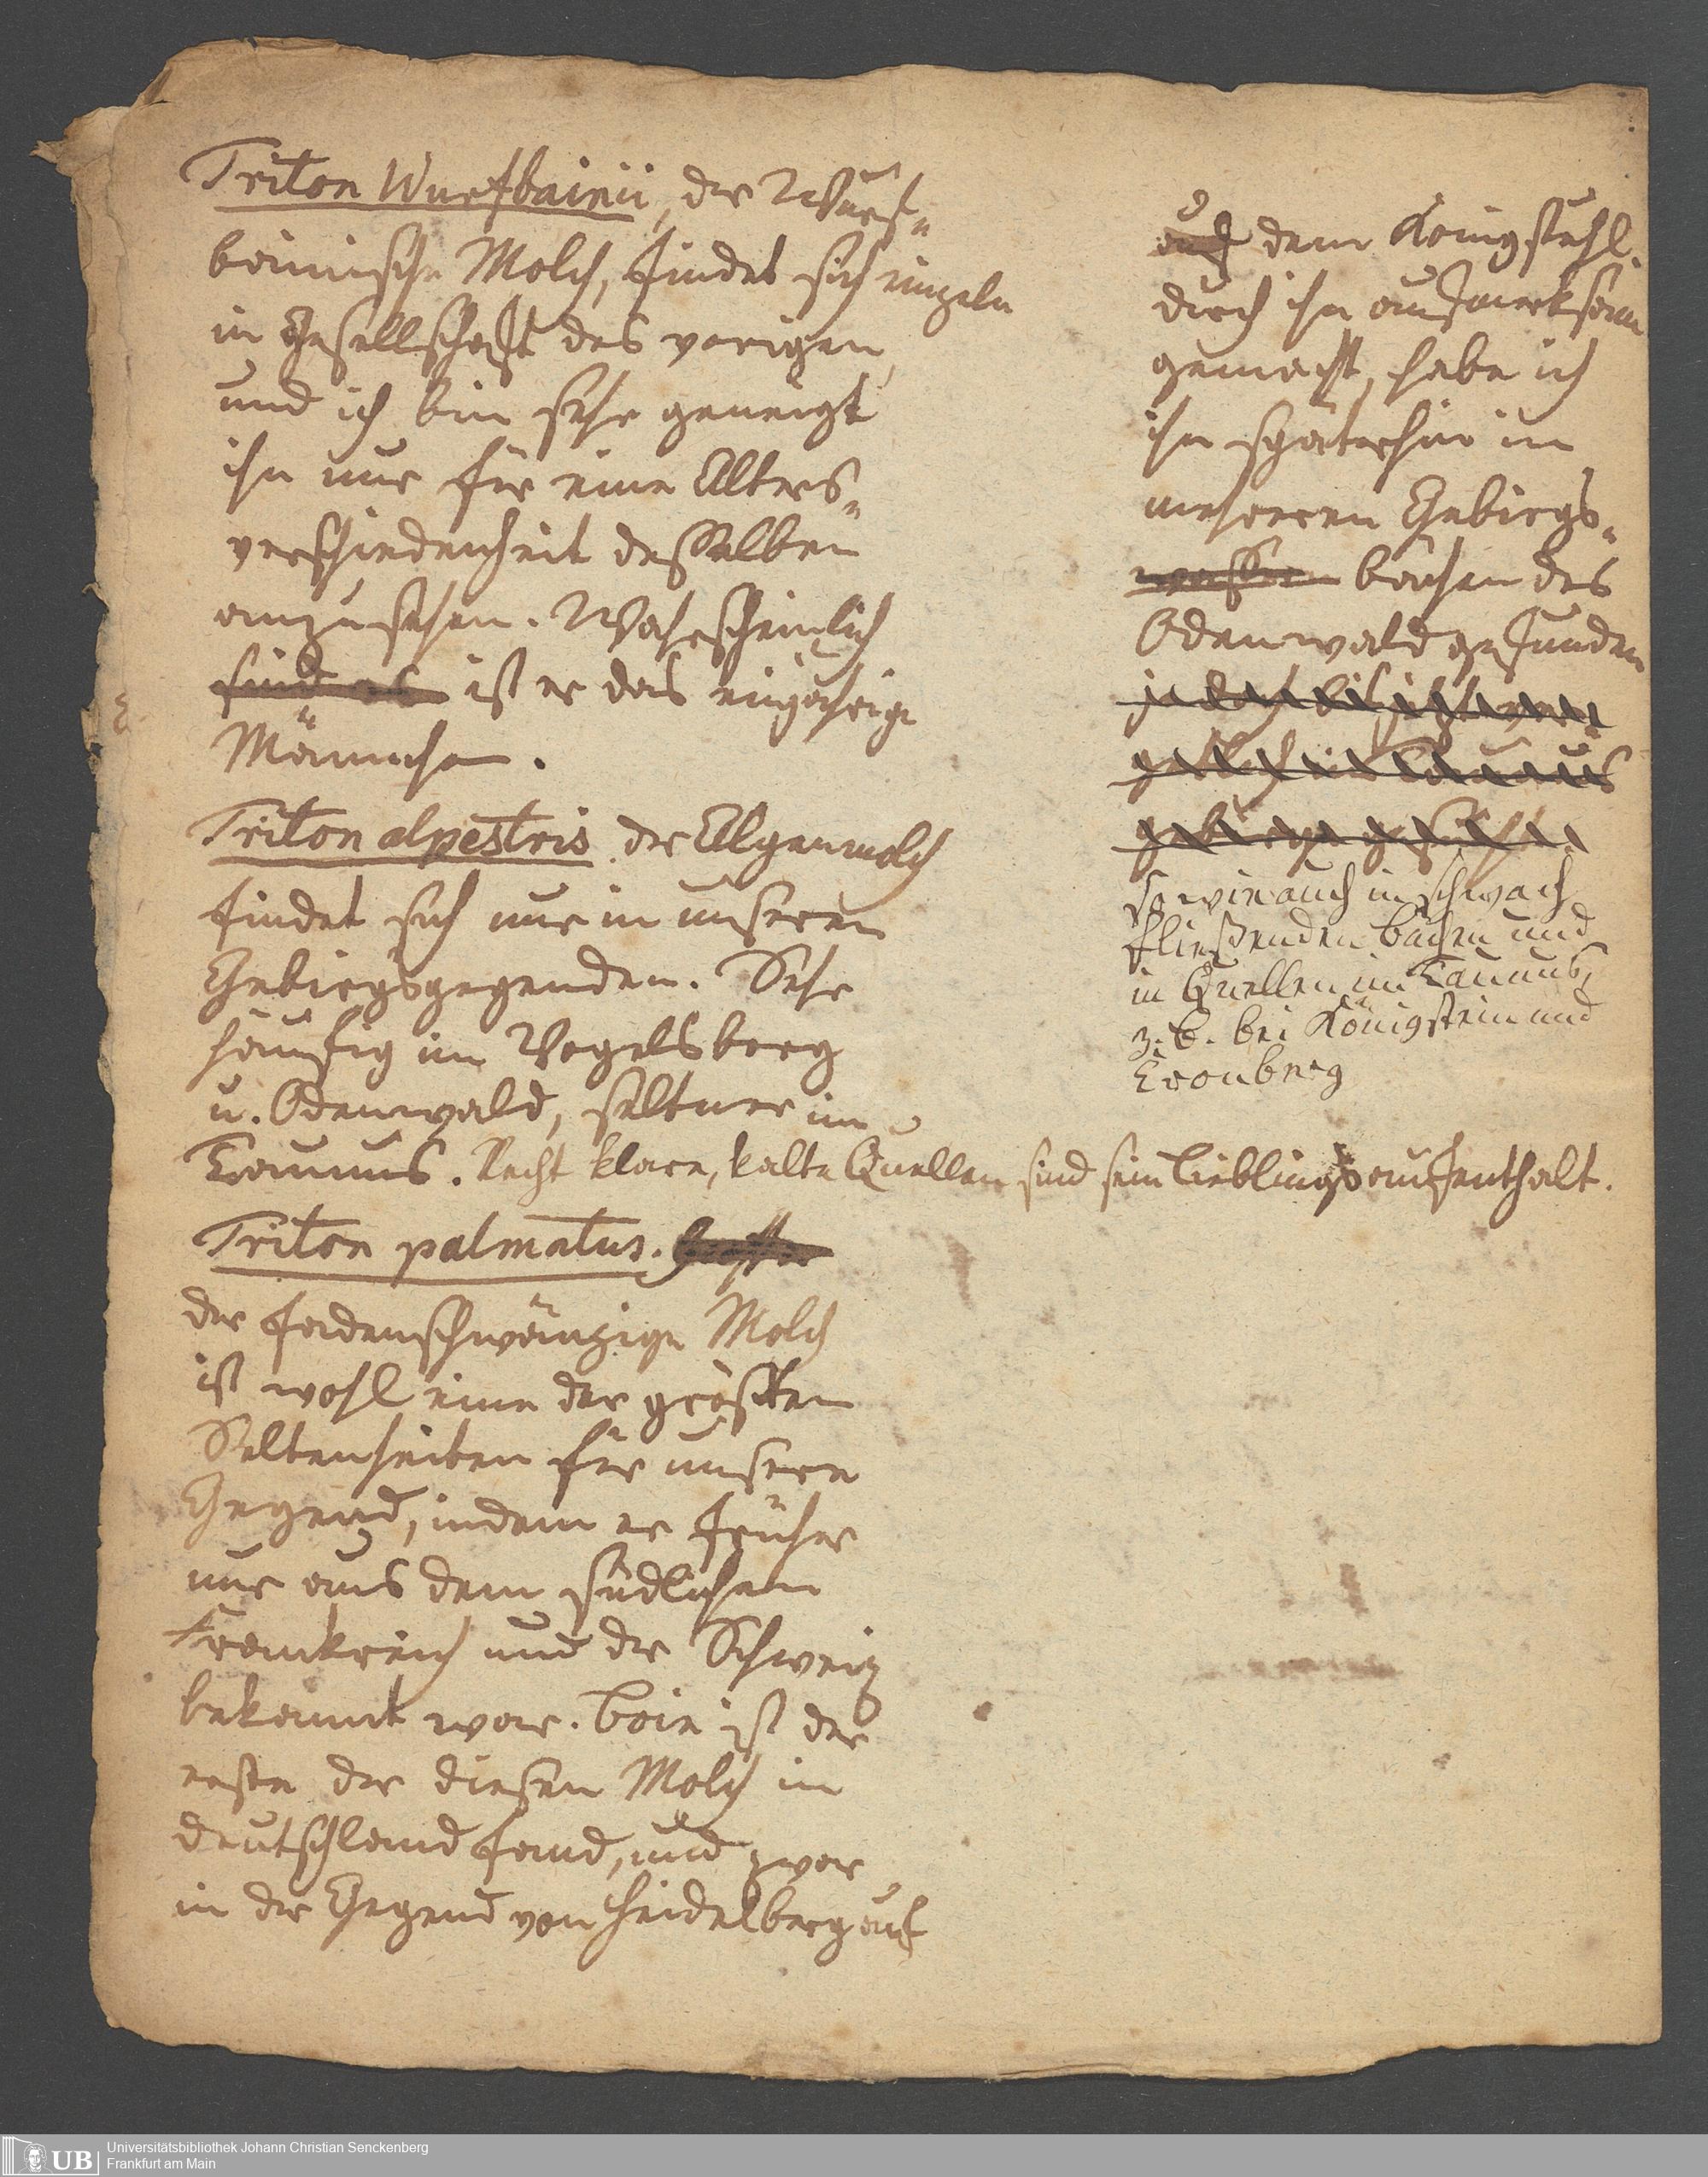 Triton Wurfbainii, der Wurf-
bainische Molch, findet sich einzeln
in Gesellschaft des vorigen,
und ich bin sehr geneigt
ihn nur für eine Alters-
verschiedenheit desselben
anzusehen. Wahrscheinlich
sind es ist er das einjährige
Männchen.
Triton alpestris. der Alpenmolch
findet sich nur in unseren
Gebirgsgegenden. Sehr
häufig im Vogelsberg
u. Odenwald, seltner im
Taunus. Recht klare, kalte Quellen sind sein Lieblingsaufenthalt.
Triton palmatus.
der fadenschwänzige Molch
ist wohl eine der größten
Seltenheiten für unsere
Gegend, indem er früher
nur aus dem südlichen
Frankreich und der Schweiz
bekannt war. Boie ist der
erste der diesen Molch in
Deutschland fand, und zwar
in der Gegend von Heidelberg auf
auf dem Königstuhl.
durch ihn aufmerksam
gemacht, habe ich
ihn späterhin in
mehreren Gebirgs-
wassern bächen des
Odenwald gefunden
so wie auch in schwach
fließenden Bächen und
in Quellen im Taunus,
z. B. bei Königstein und
Cronberg
Universitätsbibliothek Johann Christian Senckenberg
Frankfurt am Main
UB